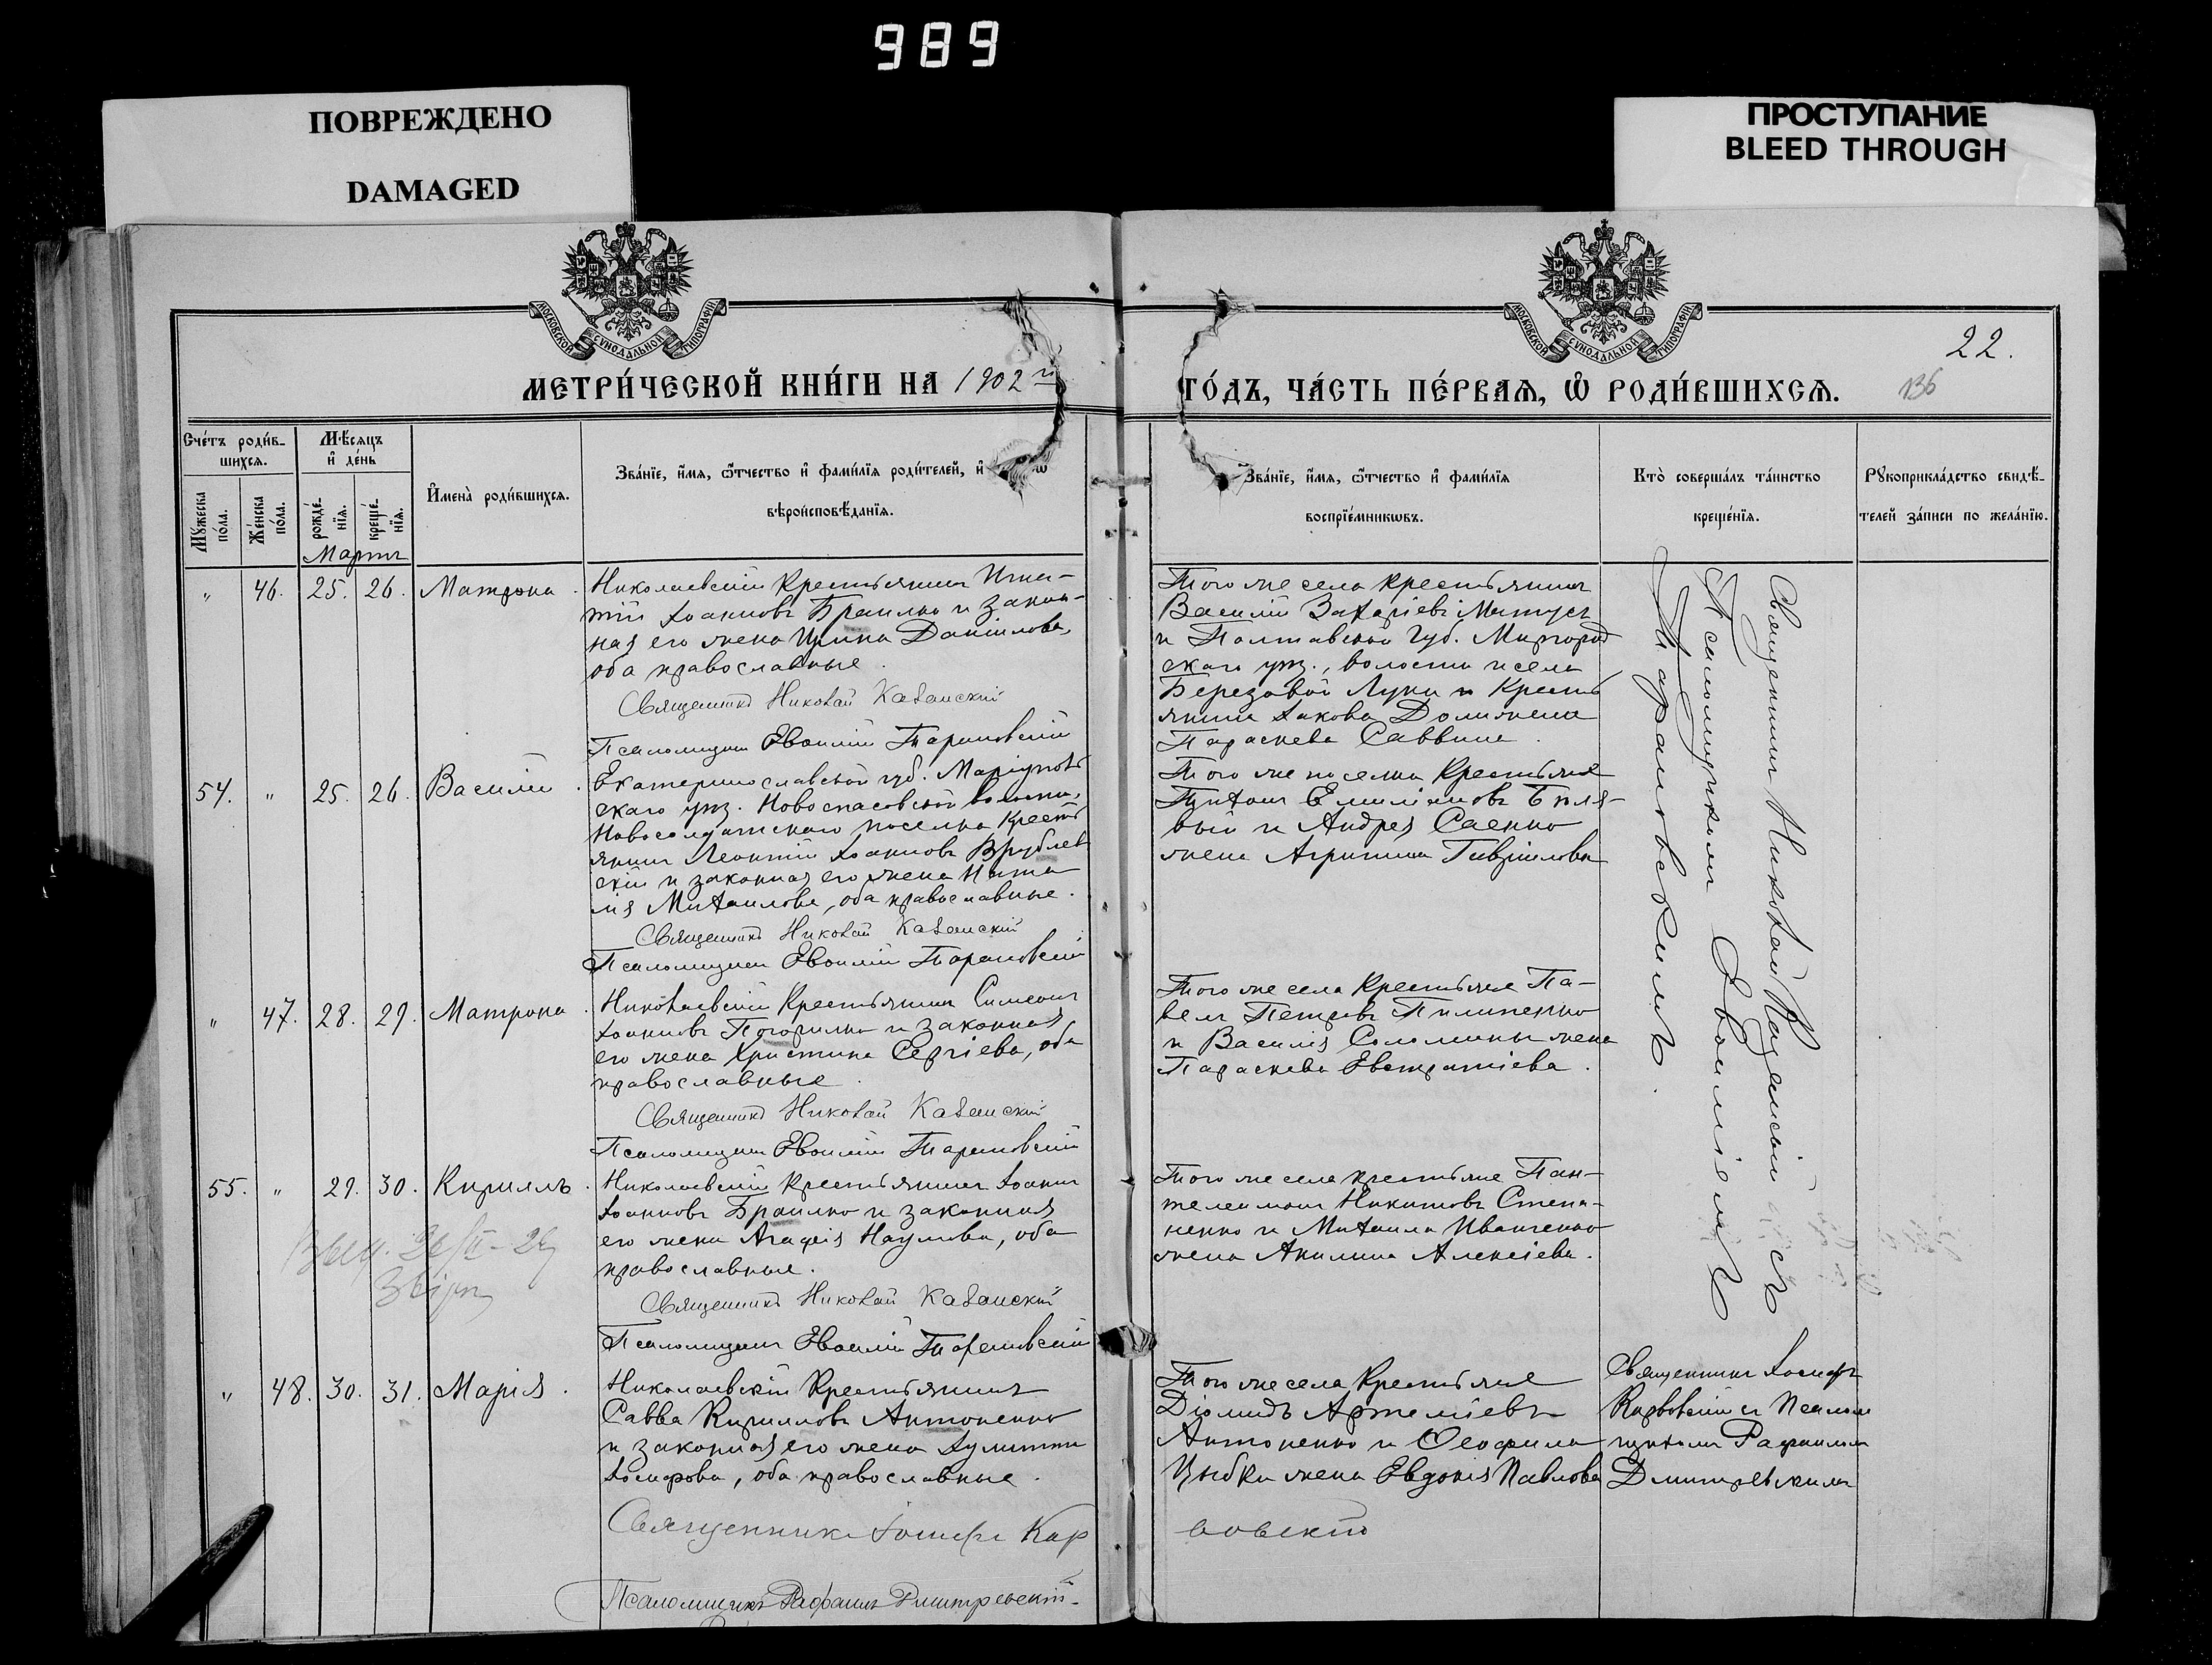 989
ПОВРЕЖДЕНО
DAMAGED
ПРОСТУПАНИЕ
BLEED THROUGH
МОСКОВСКОЙ СѴНОДАЛЬНОЙ ТИПОГРАФІИ
МОСКОВСКОЙ СѴНОДАЛЬНОЙ ТИПОГРАФІИ
22.
136
МЕТРИ́ЧЕСКОЙ КНИ́ГИ НА 1902 г.
ГО́ДЪ, ЧА́СТЬ ПЕ́РВАѦ, Ѡ҆ РОДИ́ВШИХСѦ.
Сче́тъ роди́в-
шихсѧ.
Мꙋ́жеска по́ла.
Же́нска по́ла.
Мѣ́сѧцъ
и҆ де́нь
рожде́-
нїѧ.
креще́-
нїѧ.
И҆мена̀ роди́вшихсѧ.
Зва́нїе, и҆́мѧ, ѻ҆́тчество и҆ фами́лїѧ роди́телей, и҆
вѣроисповѣ́данїѧ.
Зва́нїе, и҆́мѧ, ѻ҆́тчество и҆ фами́лїѧ
воспрїе́мникѡвъ.
Кто̀ соверша́лъ та́инство
креще́нїѧ.
Рꙋкоприкла́дство свидѣ́-
телей за́писи по жела́нїю.
Мартъ
" 46. 25. 26. Матрона.
Николаевскій Крестьянинъ Игна-
тій Іоанновъ Браилко и закон-
ная его жена Ирина Даніилова,
оба православные.
Священникъ Николай Казанскій
Псаломщикъ Евфимій Тарановскій
Того же села крестьянинъ
Василій Захаріевъ
и Полтавской губ. Миргород
скаго узд., волости и села
Березовой Луки Кресть
янина Іакова жена
Параскева Саввина.
54. " 25. 26. Василій.
Екатеринославской губ. Маріуполь
скаго узд. Новоспасовской волости,
Новосолдатскаго поселка Кресть
янинъ Леонтій Іоанновъ Врублев
скій и законная его жена Ната
лія Михаилова, оба православные.
Священникъ Николай Казанскій
Псаломщикъ Евфимій Тарановскій
Того же поселка Крестьяне
Емиліановъ Бѣля-
вый и Андрея Саенко
жена Агрипина Гавріилова
" 47. 28. 29. Матрона.
Николаевскій Крестьянинъ Симеонъ
Іоанновъ Погорилко и законная
его жена Христина Сергіева, оба
православные.
Священникъ Николай Казанскій
Псаломщикъ Евфимій Тарановскій
Того же села Крестьяне Па-
велъ Петровъ Пилипенко
и Василія Соломины жена
Параскева Евстратіева.
55. " 29. 30. Кириллъ.
Николаевскій Крестьянинъ Іоаннъ
Іоанновъ Браилко и законная
его жена Агафія Наумова, оба
православные.
Священникъ Николай Казанскій
Псаломщикъ Евфимій Тарановскій
Того же села крестьяне Пан-
телеимонъ Никитовъ Степа-
ненко и Михаила Иваненко
жена Акилина Алексіева.
Священникъ Николай Казанскій съ
Псаломщикомъ Евфиміемъ
Тарановскимъ.
" 48. 30. 31. Марія.
Николаевскій Крестьянинъ
Савва Кирилловъ Антоненко
и законная его жена Іулитта
Іосифова, оба православные.
Священникъ Іосифъ Кар
вовскій
Псаломщикъ Рафаилъ Дмитревскій
Того же села Крестьяне
Діомидъ Артеміевъ
Антоненко и Ѳеофила
Цыбки жена Евдокія Павлова
Священникъ Іосифъ
Карвовскій съ Псалом
щикомъ Рафаиломъ
Дмитревскимъ